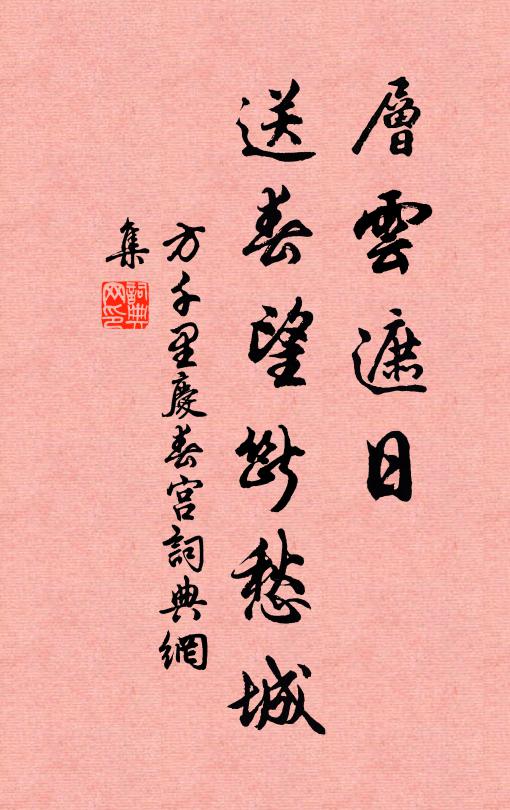 層雲遮日
送春望斷愁城
方千里慶春宮詞典網
集
詞典
网印